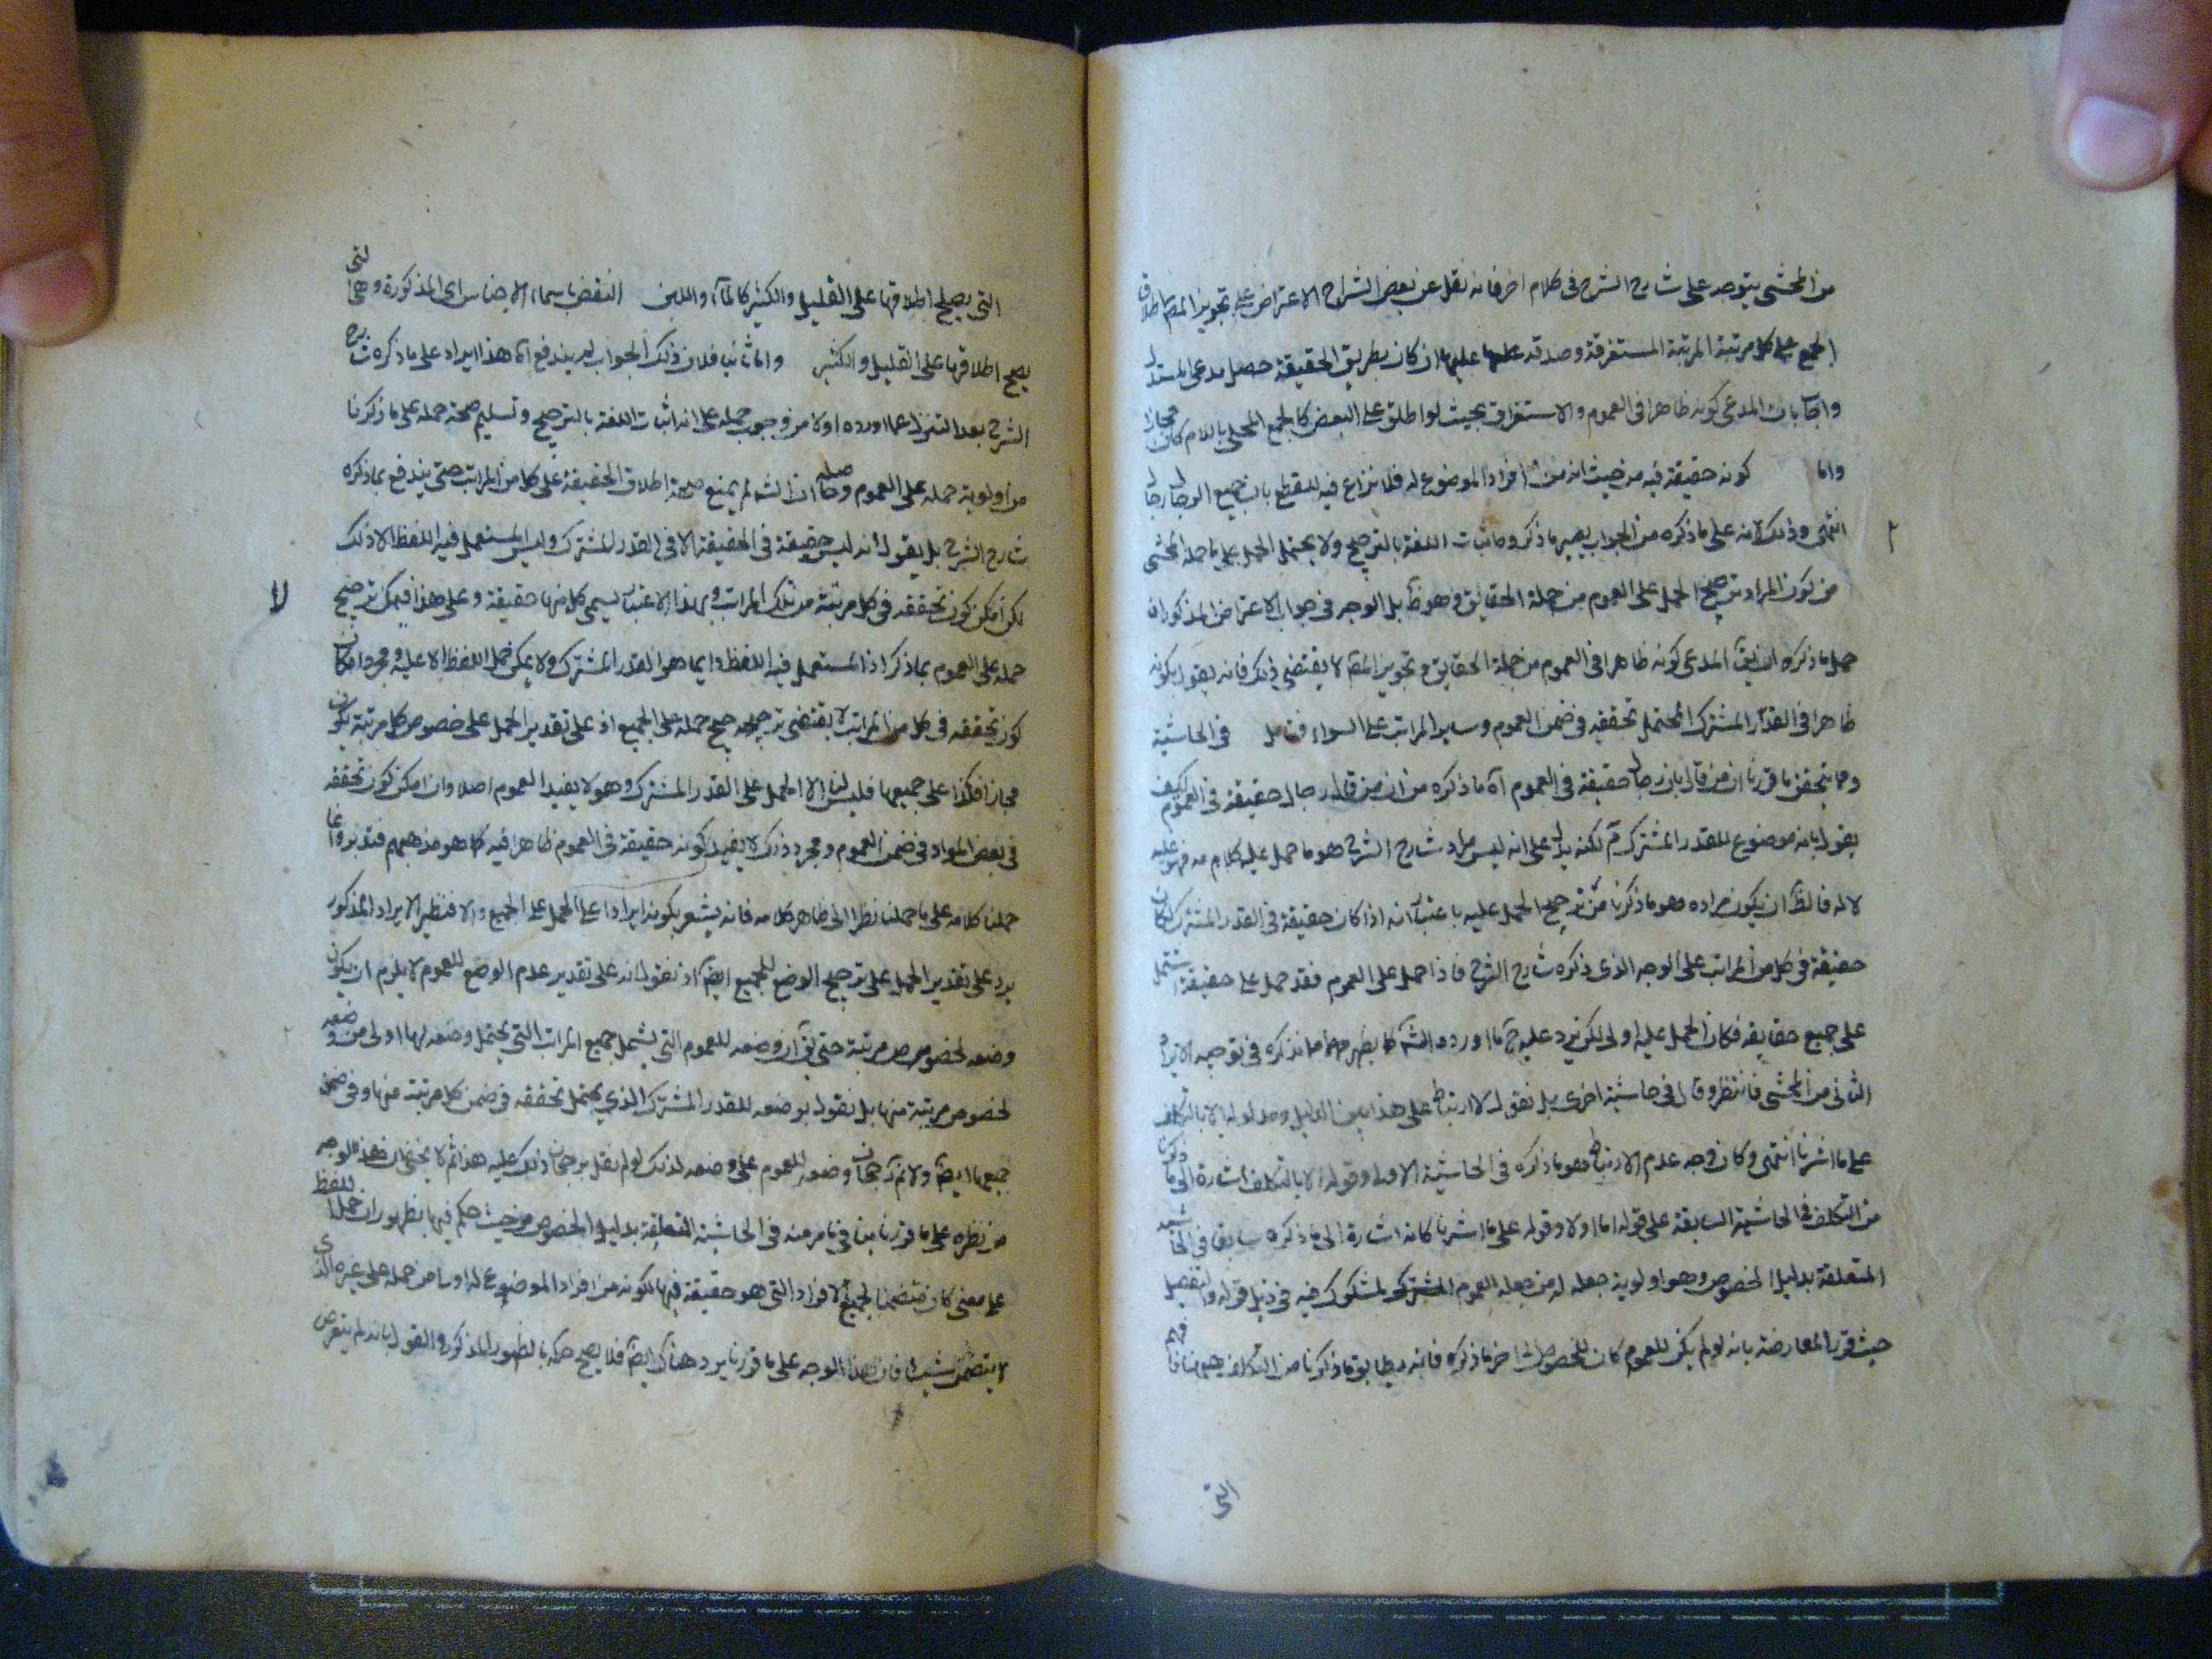 من المحشى يتوجه على شارح الشرح فى كلام اخر فانه نقل عن بعض الشراح الاعتراض على تجويز المص اطلاق
الجمع على كل مرتبة المرتبة المستغرقة وصدقه عليها ان كان بطريق الحقيقة حصل مدعى المستدل
واجاب بان المدعى كونه ظاهرا فى العموم والاستغراق بحيث لو اطلق على البعض كالجمع المحلى باللام كان مجازا
واما كونه حقيقة فيه من حيث انه من افراد الموضوع له فلا نزاع فيه للقطع بان جميع الرجال رجال
انتهى وذلك لانه على ما ذكره من الجواب يصير ما ذكروه اثبات اللغة بالترجيح ولا يحتمل الحمل على ما حمله المحشى
من كون المراد ترجيح الحمل على العموم من جملة الحقايق وهو ظ بل الوجه فى جواب الاعتراض المذكور ان
حمل ما ذكره ان يق المدعى كونه ظاهرا فى العموم من جملة الحقايق وتجويز المص لا يقتضى ذلك فانه يقول بكونه
ظاهرا فى القدر المشترك المحتمل تحققه فى ضمن العموم وساير المراتب على السواء فتامل فى الحاشية
ومما يحقق ما قررنا ان من قال بان رجال حقيقة فى العموم اه ما ذكره من ان من قال رجال حقيقة فى العموم كيف
يقول بانه موضوع للقدر المشترك مم لكنه يدل على انه ليس مراد شارح الشرح هو ما حمل عليه كلامه فهو عليه
لا له فالظ ان يكون مراده هو ما ذكرنا من ترجيح الحمل عليه باعتبار انه اذا كان حقيقة فى القدر المشترك كان
حقيقة فى كل من المراتب على الوجه الذى ذكره شارح الشرح فاذا حمل على العموم فقد حمل على حقيقة تشتمل
على جميع حقايقه فكان الحمل عليه اولى لكن يرد عليه ح ما اورده الش كما يظهر مما نذكره فى توجيه الايراد
الثانى من المحشى فانتظر وقال فى حاشية اخرى بل نقول لا ارتباط على هذا بين الدليل ومدلوله الا بالتكلف
على ما اشرنا انتهى وكان وجه عدم الارتباط هو ما ذكره فى الحاشية الاولى وقوله الا بالتكلف اشارة الى ما ذكرنا
من التكلف فى الحاشية السابقة على قوله اما اولا وقوله على ما اشرنا كانه اشارة الى ما ذكره سابقا فى الحاشية
المتعلقة بدليل الخصوص وهو اولوية جعله له من جعله للعموم المشكوك فيه فى ذيل قوله والتفصيل
حيث قرر المعارضة بانه لو لم يكن للعموم كان للخصوص الى اخر ما ذكره فانه يطابق ما ذكرنا من التكلف ههنا فافهم
التى
التى يصلح اطلاقها على القليل والكثير كالماء واللبن النقض باسماء الاجناس اى المذكورة وهى التى
يصح اطلاقها على القليل والكثير واما ثانيا فلان ذلك الجواب لم يندفع اه هذا ايراد على ما ذكره شارح
الشرح بعد التنزل عما اورده اولا من وجوب حمله على انه اثبات اللغة بالترجيح وتسليم صحة حمله على ما ذكرنا
من اولوية حمله على العموم وحاصله ان الش لم يمنع صحة اطلاق الحقيقة على كل من المراتب حتى يندفع بما ذكره
شارح الشرح بل يقول انه ليس حقيقة فى الحقيقة الا فى القدر المشترك وليس المستعمل فيه اللفظ الا ذلك
لكن امكن كون تحققه فى كل مرتبة من تلك المراتب وبهذا الاعتبار يسمى كل منها حقيقة وعلى هذا فيمكن ترجيح
لا
حمله على العموم بما ذكر اذ المستعمل فيه اللفظ دايما هو القدر المشترك ولا يمكن حمل اللفظ الا عليه ومجرد امكان
كون تحققه فى كل من المراتب لا يقتضى ترجيح حمله على الجميع اذ على تقدير الحمل على خصوص كل مرتبة يكون
مجازا فكذا على جميعها فليس لنا الا الحمل على القدر المشترك وهو لا يفيد العموم اصلا وان امكن كون تحققه
فى بعض المواد فى ضمن العموم ومجرد ذلك لا يفيد كونه حقيقة فى العموم ظاهرا فيه كما هو مذهبهم فتدبر وانما
حملنا كلامه على ما حملنا نظرا الى ظاهر كلامه فانه يشعر بكونه ايرادا على الحمل على الجميع والا فنظير الايراد المذكور
يرد على تقدير الحمل على ترجيح الوضع للجميع ايض اذ نقول انه على تقدير عدم الوضع للعموم لا يلزم ان يكون
وضعه لخصوص مرتبة حتى يق ان وضعه للعموم التى يشمل جميع المراتب التى يحتمل وضعه لها اولى من وضعه
لخصوص مرتبة منها بل نقول بوضعه للقدر المشترك الذى يحتمل تحققه فى ضمن كل مرتبة منها وفى ضمن
جميعها ايض ولا نم رجحان وضعه للعموم على وضعه لذلك لو لم نقل برجحان ذلك عليه هذا ثم لا يخفى ان هذا الوجه
من نظره على ما قررنا ينافى ما مر منه فى الحاشية المتعلقة بدليل الخصوص من حيث حكم فيها بظهور ان حمل اللفظ
على معنى كان متضمنا لجميع الافراد التى هو حقيقة فيها لكونه من افراد الموضوع له اولى من حمله على غيره الذى
لا يتضمن شيئا فان هذا الوجه على ما قررنا يرد هناك ايض فلا يصح حكمه بالظهور المذكور والقول بانه لم يتعرض